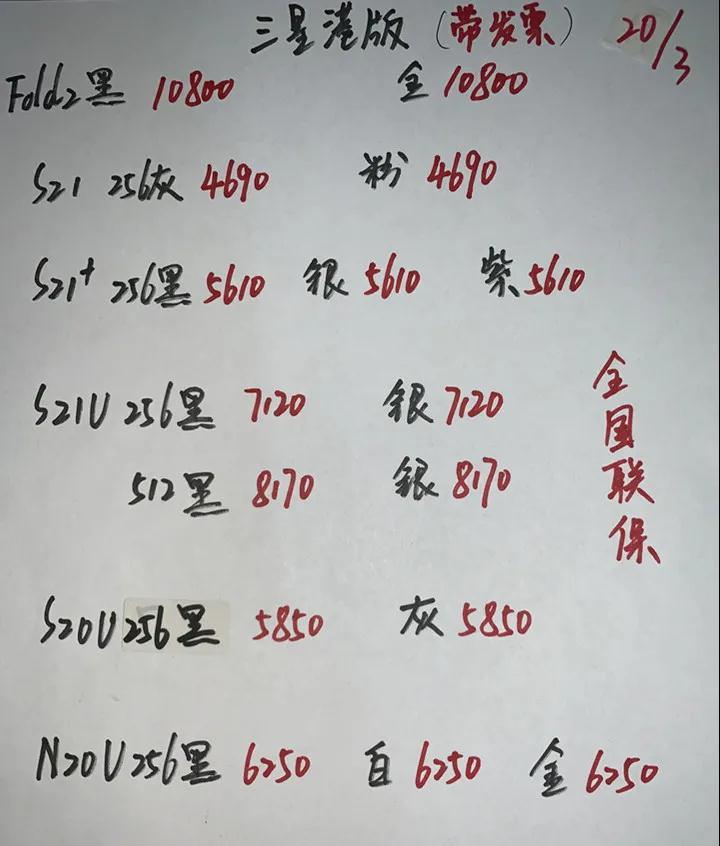 三星港版(带发票) 20/3
Fold2黑 10800 金 10800
S21 256灰 4690 粉 4690
S21+ 256黑 5610 银 5610 紫 5610
S21U 256黑 7120 银 7120
512黑 8170 银 8170
全国联保
S20U 256黑 5850 灰 5850
N20U 256黑 6250 白 6250 金 6250